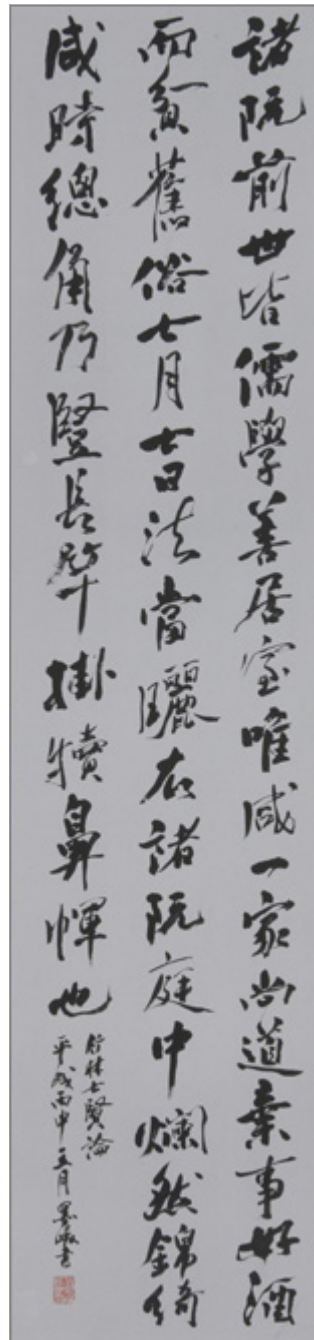 諸阮前世皆儒學善居室唯咸一家尚道棄事好酒
而貧舊俗七月七日法當曬衣諸阮庭中爛然錦綺
咸時總角乃豎長竿掛犢鼻褌也
竹林七賢論
平成丙申五月 書